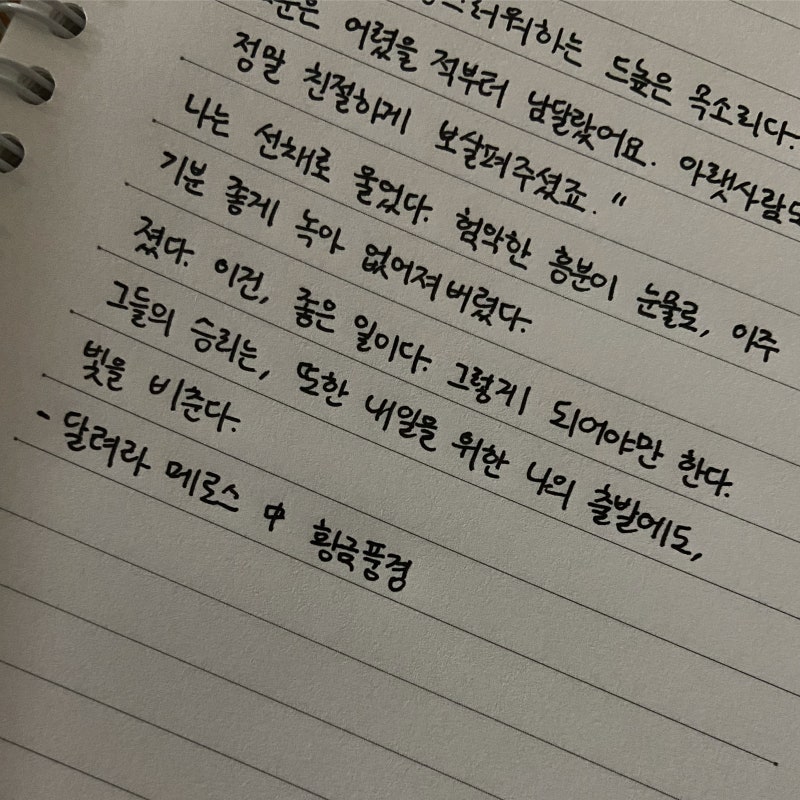 드높은 목소리다.
어렸을 적부터 남달랐어요. 아랫사람도
정말 친절하게 보살펴주셨죠. "
나는 선채로 울었다. 험악한 흥분이 눈물로, 아주
기분 좋게 녹아 없어져버렸다.
졌다. 이건, 좋은 일이다. 그렇게 되어야만 한다.
그들의 승리는, 또한 내일을 위한 나의 출발에도,
빛을 비춘다.
- 달려라 메로스 中 황금풍경